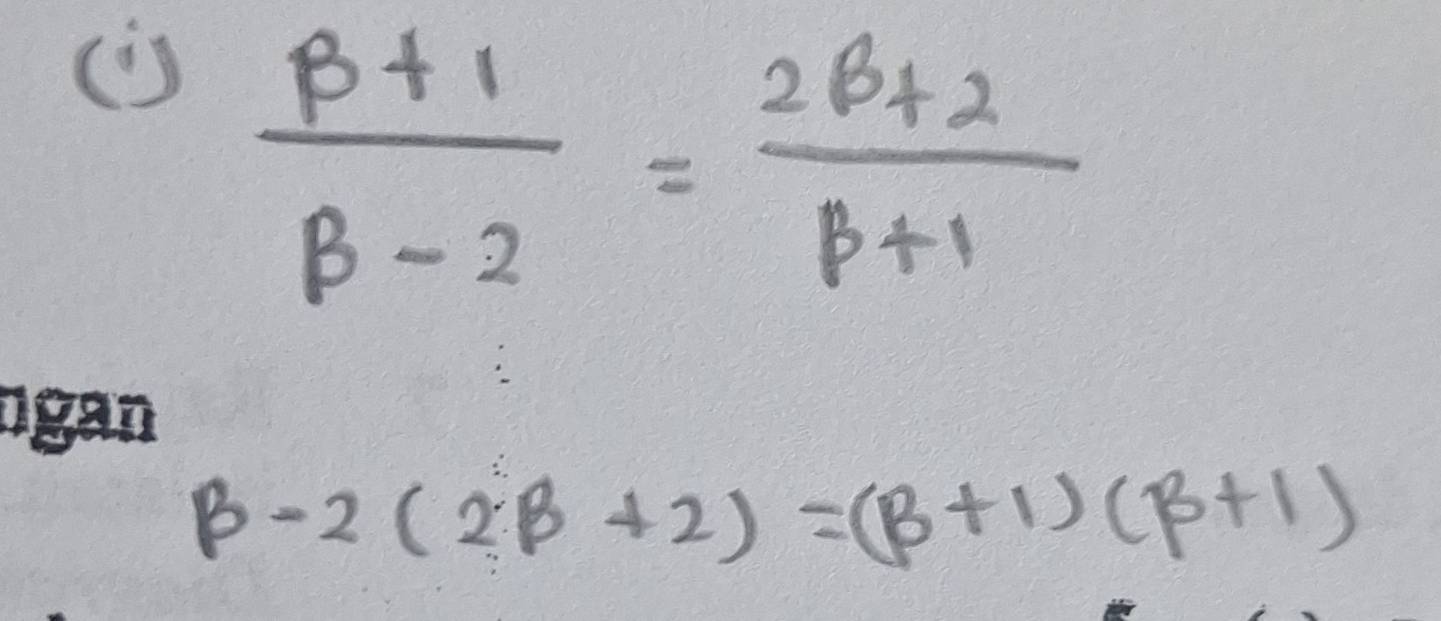 (i) β + 1 / β - 2 = 2β + 2 / β + 1
ngan
β - 2 ( 2β + 2 ) = (β + 1) (β + 1)